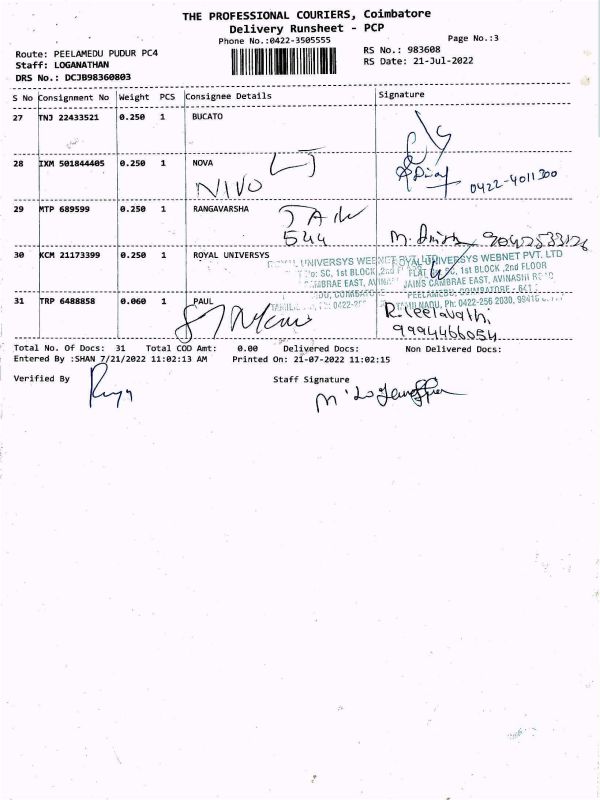 THE PROFESSIONAL COURIERS, Coimbatore
Delivery Runsheet - PCP
Phone No.:0422-3505555
Page No.:3
Route: PEELAMEDU PUDUR PC4
RS No.: 983608
Staff: LOGANATHAN
RS Date: 21-Jul-2022
DRS No.: DCJB98360803
S No Consignment No Weight PCS Consignee Details Signature
27 TNJ 22433521 0.250 1 BUCATO
28 IXM 501844405 0.250 1 NOVA
NIVO
0422-4011300
29 MTP 689599 0.250 1 RANGAVARSHA
544
30 KCM 21173399 0.250 1 ROYAL UNIVERSYS
ROYAL UNIVERSYS WEBNET PVT. LTD
1st BLOCK ,2nd FLOOR
JAINS CAMBRAE EAST, AVINASHI ROAD
PEELAMEDU, COIMBATORE
31 TRP 6488858 0.060 1 PAUL
TAMILNADU, Ph: 0422-256 2030
R. Leelavathi
9994466054
Total No. Of Docs: 31 Total COD Amt: 0.00 Delivered Docs: Non Delivered Docs:
Entered By :SHAN 7/21/2022 11:02:13 AM Printed On: 21-07-2022 11:02:15
Verified By
Staff Signature